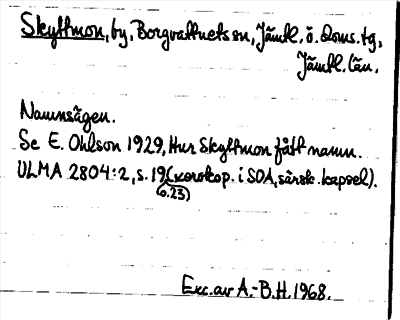 Skyttmon, by, Borgvattnets sn, Jämtl. ö. doms. tg,
Jämtl. län.
Namnsägen.
Se E. Ohlson 1929, Hur Skyttmon fått namn.
ULMA 2804:2, s. 19 (xerokop. i SOA, särsk. kapsel).
(o. 23)
Exc. av A.-B.H. 1968.